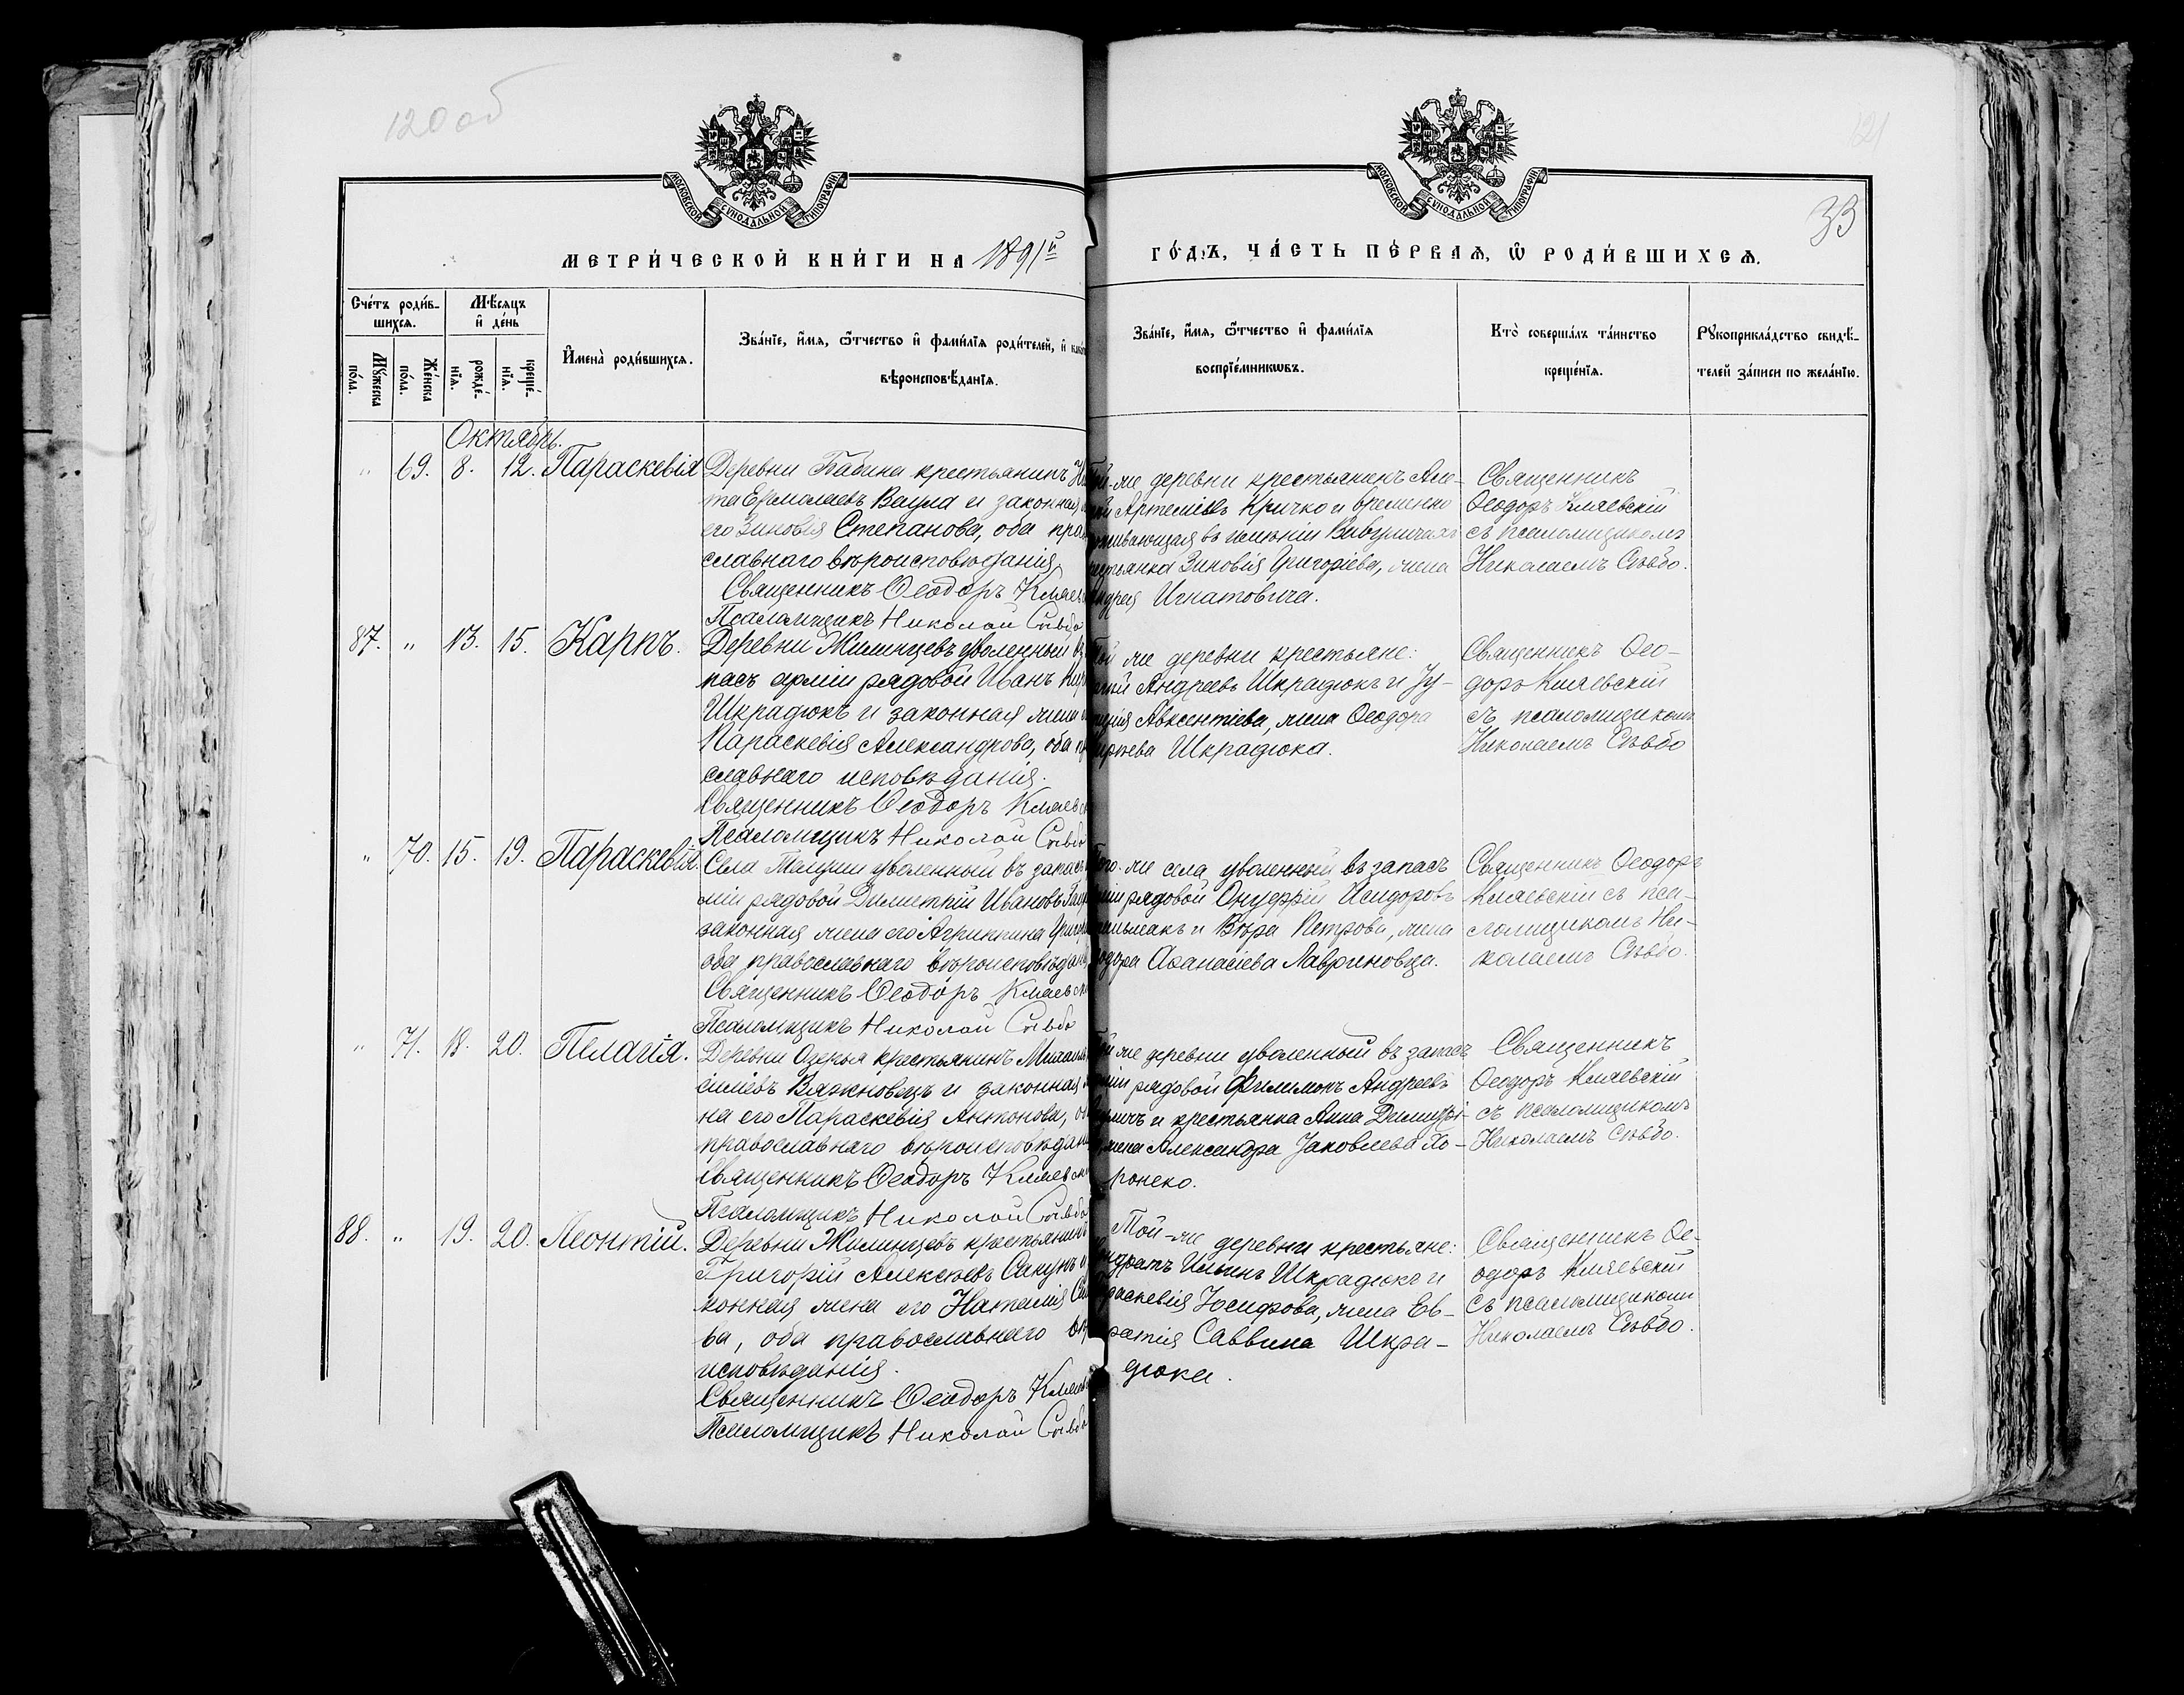 120 об
121
33
МОСКОВСКОЙ СѴНОДАЛЬНОЙ ТИПОГРАФІИ
МОСКОВСКОЙ СѴНОДАЛЬНОЙ ТИПОГРАФІИ
МЕТРИ́ЧЕСКОЙ КНИ́ГИ НА 1891й
ГО́ДЪ, ЧА́СТЬ ПЕ́РВАѦ, Ѡ҆ РОДИ́ВШИХСѦ.
Сче́тъ роди́в-
шихсѧ.
Мѣ́сѧцъ
и҆ де́нь
Мꙋ́жеска
по́ла.
Же́нска
по́ла.
рожде́-
нїѧ.
креще́-
нїѧ.
И҆мена̀ роди́вшихсѧ.
Зва́нїе, и҆́мѧ, ѻ҆́тчество и҆ фами́лїѧ роди́телей, и҆
вѣроисповѣ́данїѧ.
Зва́нїе, и҆́мѧ, ѻ҆́тчество и҆ фами́лїѧ
воспрїе́мникѡвъ.
Кто̀ соверша́лъ та́инство
креще́нїѧ.
Рꙋкоприкла́дство свидѣ́-
телей за́писи по жела́нїю.
Октябрь.
" 69. 8. 12. Параскевія
Деревни Бабина крестьянинъ Ни
та Ермолаевъ Ваула и законная
его Зиновія Степанова, оба пра
славнаго вѣроисповѣданія.
Священникъ Ѳеодоръ Кляев
Псаломщикъ Николай Сѣвбо
-же деревни крестьянинъ Але-
Артеміевъ Кричко и временно
живающая въ имѣніи Вивуличахъ
стьянка Зиновія Григоріева, жена
Андрея Игнатовича.
Священникъ
Ѳеодоръ Кляевскій
съ псаломщикомъ
Николаемъ Сѣвбо.
87. " 13. 15. Карпъ.
Деревни Жилинцевъ уволенный въ
пасъ арміи рядовой Иванъ
Шкрадюкъ и законная жена
Параскевія Александрова, оба п
славнаго исповѣданія.
Священникъ Ѳеодоръ Кляевс
Псаломщикъ Николай Сѣвбо
Той же деревни крестьяне:
Андреевъ Шкрадюкъ и Іу-
Авксентіева, жена Ѳеодора
Шкрадюка.
Священникъ Ѳео-
доръ Кляевскій
съ псаломщикомъ
Николаемъ Сѣвбо
" 70. 15. 19. Параскевія.
Села уволенный въ запасъ
міи рядовой Димитрій Ивановъ
законная жена его Агриппина Григор
оба православнаго вѣроисповѣдан
Священникъ Ѳеодоръ Кляевск
Псаломщикъ Николай Сѣвбо
-же села уволенный въ запасъ
міи рядовой Онуфрій Исидоровъ
и Вѣра Петрова, жена
Аѳанасіева Лавриновца.
Священникъ Ѳеодоръ
Кляевскій съ пса-
ломщикомъ Ни-
колаемъ Сѣвбо.
" 71. 18. 20. Пелагія.
Деревни Озерья крестьянинъ Михаилъ
сімевъ Важновецъ и законная
на его Параскевія Антонова, о
православнаго вѣроисповѣдан
Священникъ Ѳеодоръ Кляевск
Псаломщикъ Николай Сѣвбо
же деревни уволенный въ запасъ
міи рядовой Филимонъ Андреевъ
и крестьянка Анна Димитрі-
жена Александра Іаковлева Хо-
ронеко.
Священникъ
Ѳеодоръ Кляевскій
съ псаломщикомъ
Николаемъ Сѣвбо.
88. " 19. 20. Леонтій.
Деревни Жилинцевъ крестьянинъ
Григорій Алексѣевъ Сакунъ и
конная жена его Наталія Са
ва, оба православнаго вѣр
исповѣданія.
Священникъ Ѳеодоръ Кляев
Псаломщикъ Николай Сѣвбо
Той-же деревни крестьяне:
ндратъ Ильинъ Шкрадюкъ и
раскевія Іосифова, жена Ев-
ратія Саввина Шкра-
дюка.
Священникъ Ѳе-
одоръ Кляевскій
съ псаломщикомъ
Николаемъ Сѣвбо.